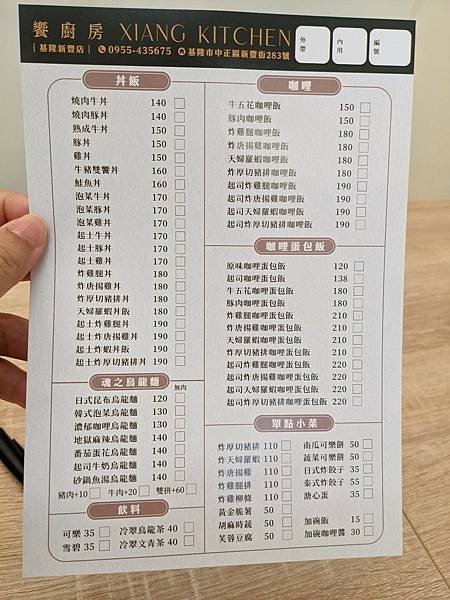 饗廚房 XIANG KITCHEN
|基隆新豐店| 0955-435675 基隆市中正區新豐街283號
外帶 內用 編號
丼飯
燒肉牛丼 140
燒肉豚丼 140
熟成牛丼 150
豚丼 150
雞丼 150
牛豬雙饗丼 160
鮭魚丼 160
泡菜牛丼 170
泡菜豚丼 170
泡菜雞丼 170
起士牛丼 170
起士豚丼 170
起士雞丼 170
炸雞腿丼 180
炸唐揚雞丼 180
炸厚切豬排丼 180
天婦羅蝦丼飯 180
起士炸雞腿丼 190
起士炸唐揚雞丼 190
起士炸蝦丼飯 190
起士炸厚切豬排丼 190
魂之烏龍麵 無肉
日式昆布烏龍麵 120
韓式泡菜烏龍麵 130
濃郁咖哩烏龍麵 130
地獄麻辣烏龍麵 130
番茄蛋花烏龍麵 130
起司牛奶烏龍麵 130
砂鍋魚湯烏龍麵 130
豬肉+10 牛肉+20 雙拼+60
飲料
可樂 35 冷翠烏龍茶 40
雪碧 35 冷翠文青茶 40
咖哩
牛五花咖哩飯 150
豚肉咖哩飯 150
炸雞腿咖哩飯 180
炸唐揚雞咖哩飯 180
天婦羅蝦咖哩飯 180
炸厚切豬排咖哩飯 180
起司炸雞腿咖哩飯 190
起司炸唐揚雞咖哩飯 190
起司天婦羅蝦咖哩飯 190
起司炸厚切豬排咖哩飯 190
咖哩蛋包飯
原味咖哩蛋包飯 120
起司咖哩蛋包飯 138
牛五花咖哩蛋包飯 210
豚肉咖哩蛋包飯 210
炸雞腿咖哩蛋包飯 210
炸唐揚雞咖哩蛋包飯 210
天婦羅蝦咖哩蛋包飯 210
炸厚切豬排咖哩蛋包飯 210
起司炸雞腿咖哩蛋包飯 220
起司炸唐揚雞咖哩蛋包飯 220
起司天婦羅蝦咖哩蛋包飯 220
起司炸厚切豬排咖哩蛋包飯 220
單點小菜
炸厚切豬排 110 南瓜可樂餅 50
炸天婦羅蝦 110 蔬菜可樂餅 50
炸唐揚雞 110 日式炸餃子 35
炸雞腿排 110 泰式炸餃子 55
炸雞柳條 110 溏心蛋 35
黃金脆薯 50
胡麻時蔬 50 加碗飯 15
芙蓉豆腐 50 加碗咖哩醬 30